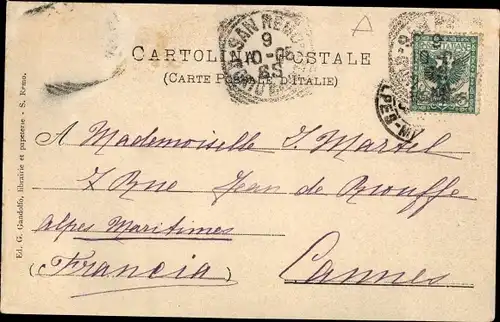 A
CARTOLINA POSTALE
(CARTE POSTALE D'ITALIE)
SAN REMO
9
10-05
A Mademoiselle J. Martel
7 Rue Jean de Riouffe
Alpes Maritimes
(Francia) Cannes
Ed. G. Gandolfo, librairie et papeterie - S. Remo.